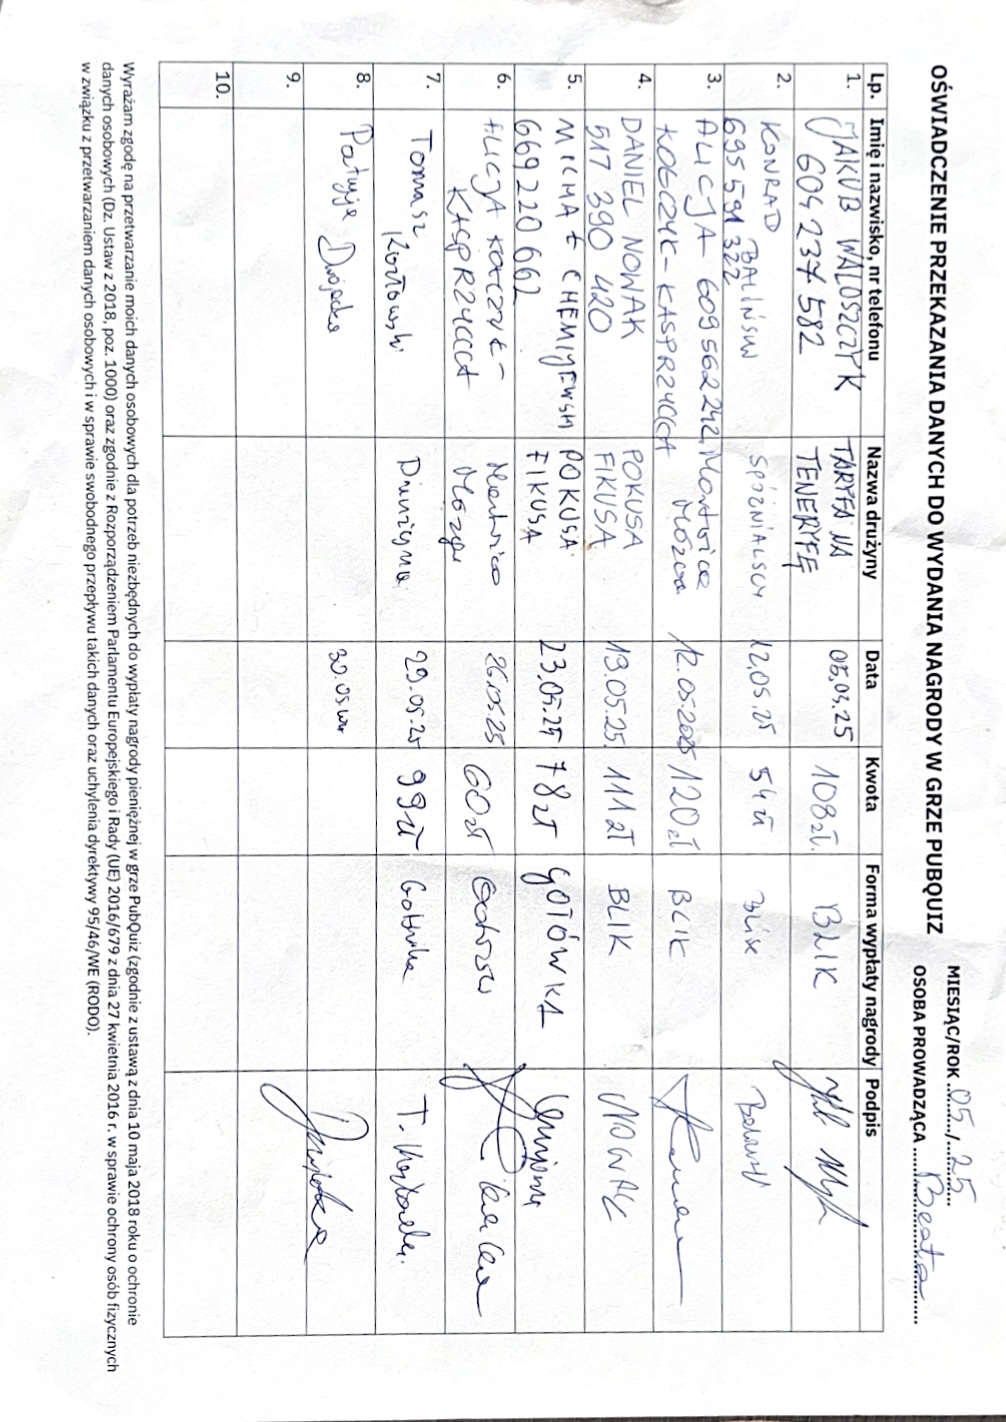 OŚWIADCZENIE PRZEKAZANIA DANYCH DO WYDANIA NAGRODY W GRZE PUBQUIZ
MIESIĄC/ROK 05/25
OSOBA PROWADZĄCA Beata
Lp. Imię i nazwisko, nr telefonu Nazwa drużyny Data Kwota Forma wypłaty nagrody Podpis
1. JAKUB WALOSZCZYK TARYFA NA 05.05.25 108zł. BLIK
604 237 582 TENERYFĘ
2. KONRAD BALIŃSKI 12.05.25 54zł BLIK
695 591 322
3. ALICJA 609562242 12.05.2025 120zł BLIK
KOŁCZYK-KASPRZYCKA
4. DANIEL NOWAK POKUSA 19.05.25. 111zł BLIK NOWAK
517 390 420 FIKUSA
5. MICHAŁ POKUSA 23.05.25 78zł GOTÓWKA
669220662 FIKUSA
6. ALICJA KOŁCZYK- 26.05.25 60zł
KASPRZYCKA
7. Tomasz 29.05.25 99zł Gotówka T.
Kozłowski
8. 30.05
9.
10.
Wyrażam zgodę na przetwarzanie moich danych osobowych dla potrzeb niezbędnych do wypłaty nagrody pieniężnej w grze PubQuiz (zgodnie z ustawą z dnia 10 maja 2018 roku o ochronie
danych osobowych (Dz. Ustaw z 2018, poz. 1000) oraz zgodnie z Rozporządzeniem Parlamentu Europejskiego i Rady (UE) 2016/679 z dnia 27 kwietnia 2016 r. w sprawie ochrony osób fizycznych
w związku z przetwarzaniem danych osobowych i w sprawie swobodnego przepływu takich danych oraz uchylenia dyrektywy 95/46/WE (RODO).